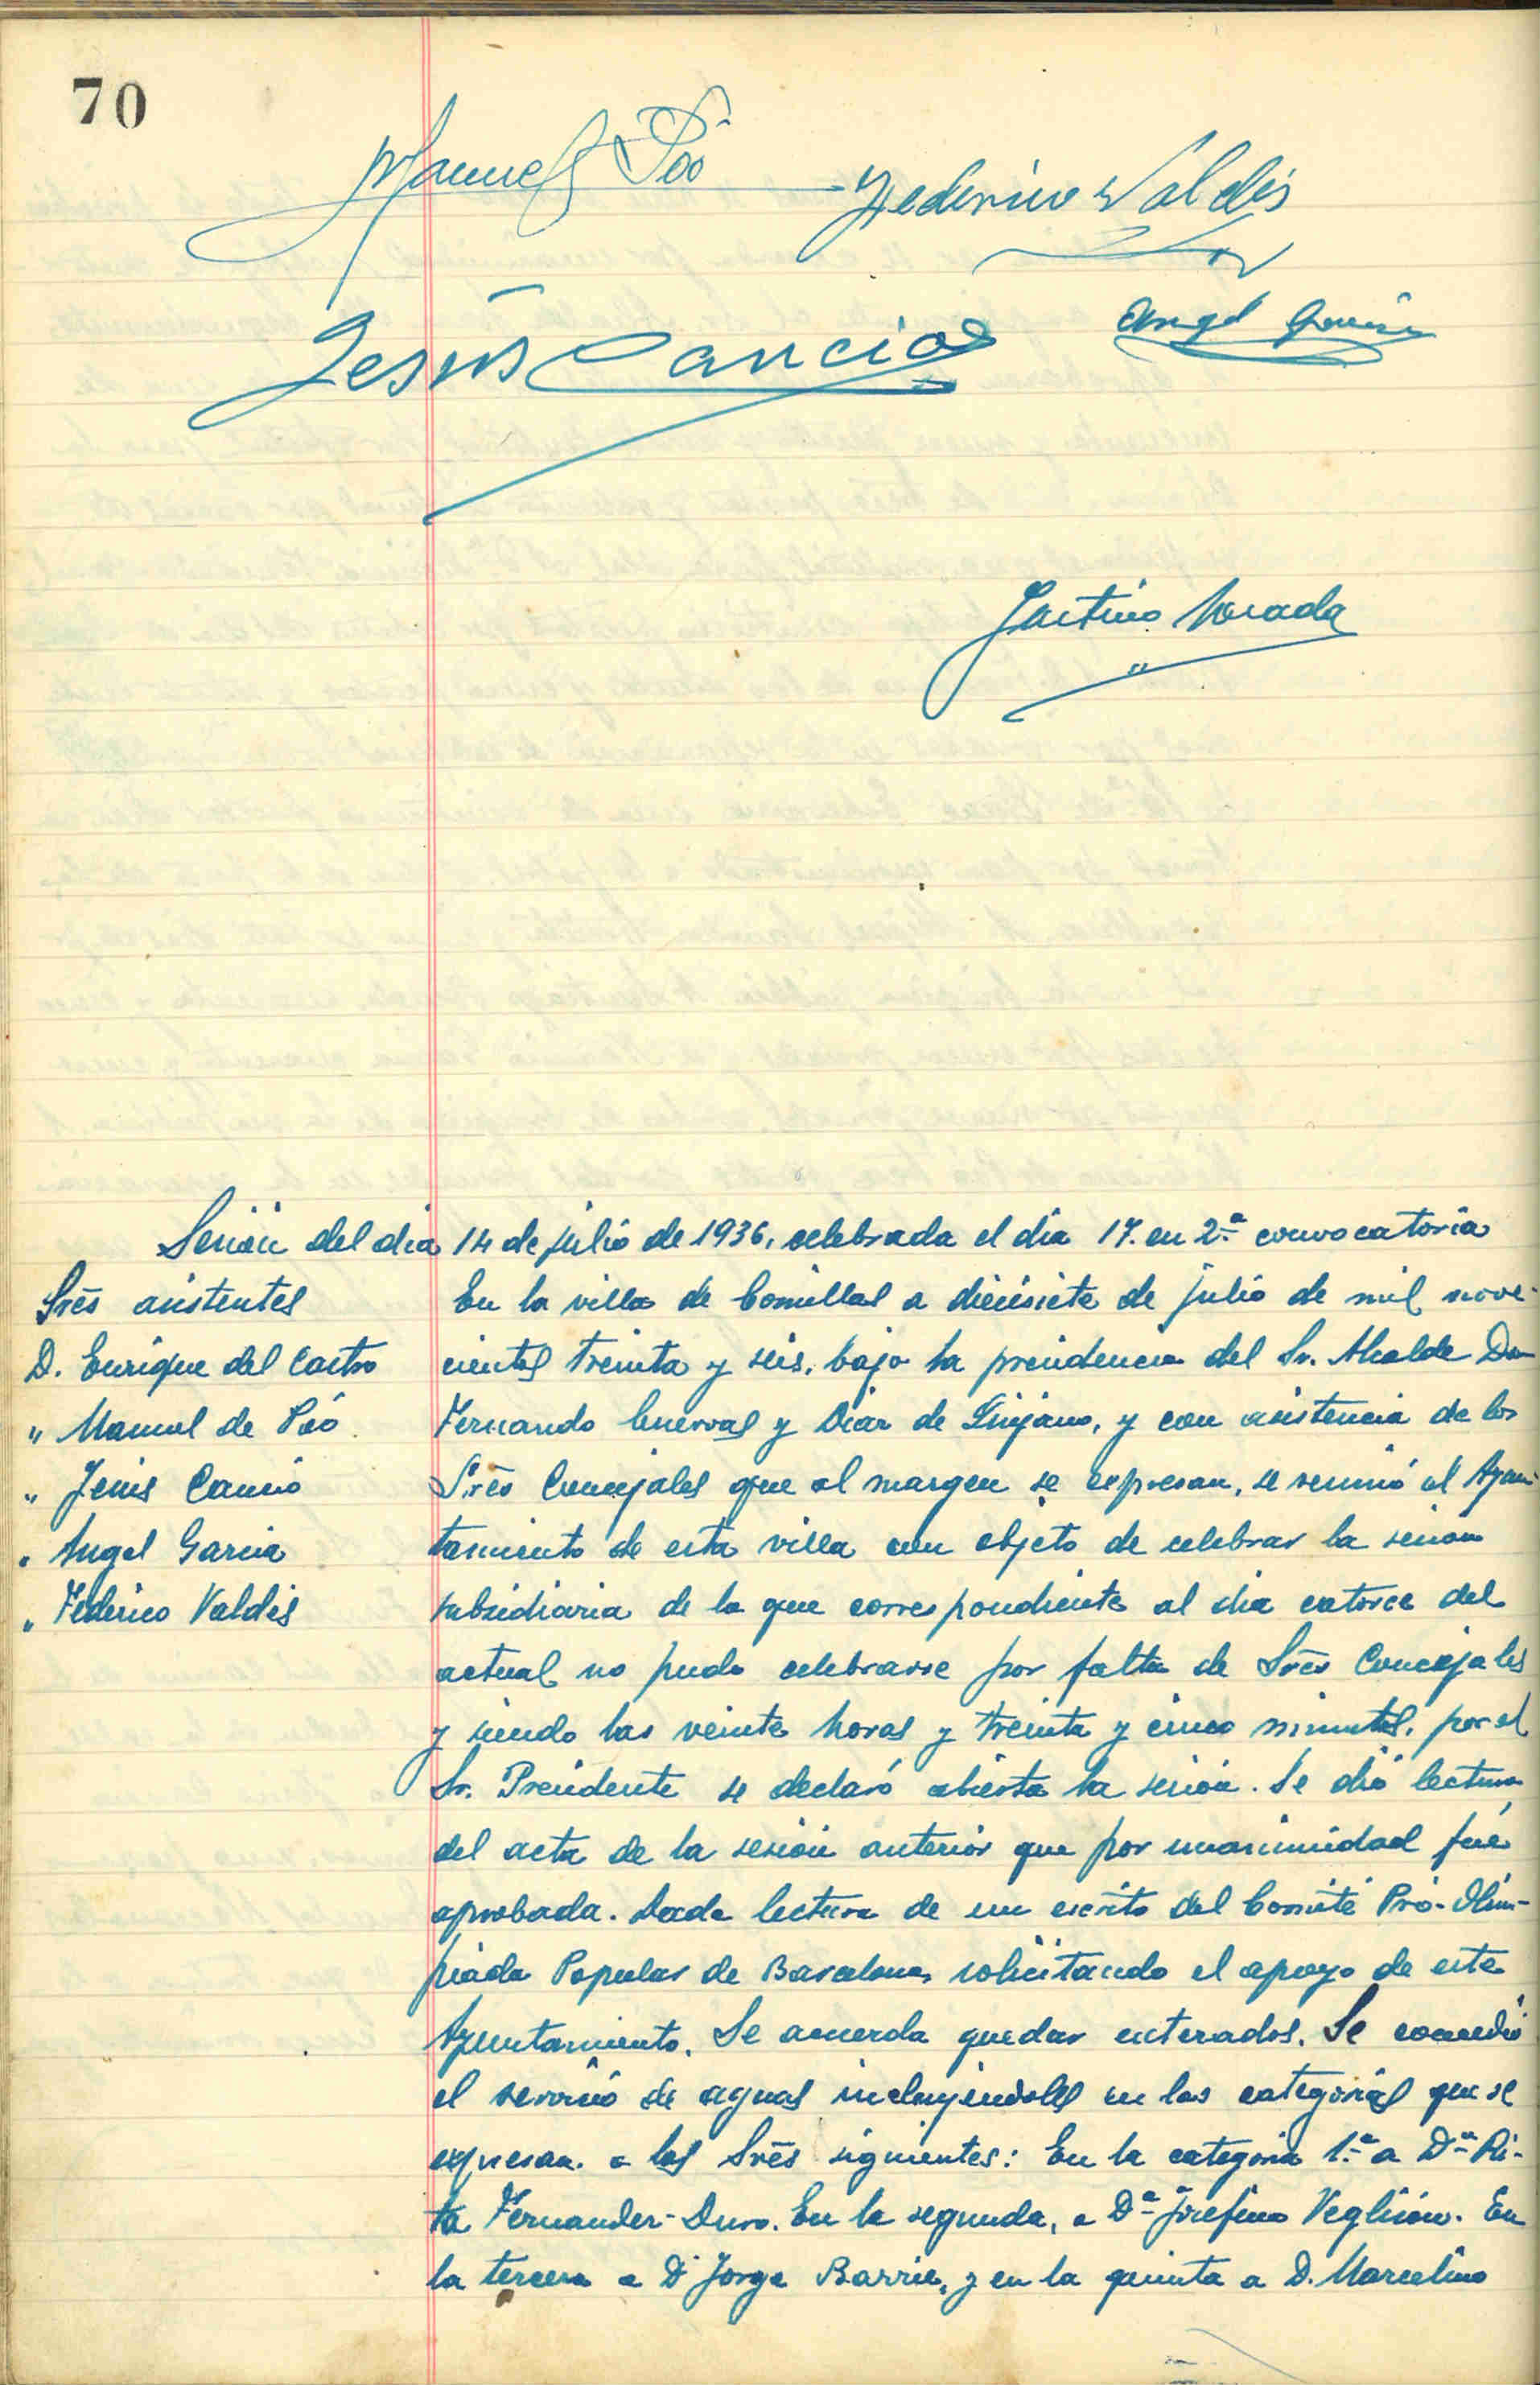 70
Manuel Póo
Federico Valdés
Jesús Cancio
Angel García
Faustino Morada
Sesión del dia 14 de julio de 1936, celebrada el dia 17. en 2ª convocatoria
Sres asistentes
D. Enrique del Castro
" Manuel de Póo
" Jesús Cancio
" Angel Garcia
" Federico Valdés
En la villa de Comillas a diecisiete de julio de mil nove-
cientos treinta y seis, bajo la presidencia del Sr. Alcalde Don
Fernando Cuevas y Diaz de Quijano, y con asistencia de los
Sres Concejales que al margen se expresan, se reunió el Ayun-
tamiento de esta villa con objeto de celebrar la sesión
subsidiaria de la que correspondiente al dia catorce del
actual no pudo celebrarse por falta de Sres Concejales
y siendo las veinte horas y treinta y cinco minutos, por el
Sr. Presidente se declaró abierta la sesión. Se dió lectura
del acta de la sesión anterior que por unanimidad fué
aprobada. Dada lectura de un escrito del Comité Pró-Olim-
piada Popular de Barcelona, solicitando el apoyo de este
Ayuntamiento. Se acuerda quedar enterados. Se concedió
el servicio de aguas incluyéndoles en las categorias que se
expresan a los Sres siguientes: En la categoria 1ª a Dª Ri-
ta Fernander-Duro. En la segunda, a Dª Josefina Veglisón. En
la tercera a D Jorge Barrie, y en la quinta a D. Marcelino